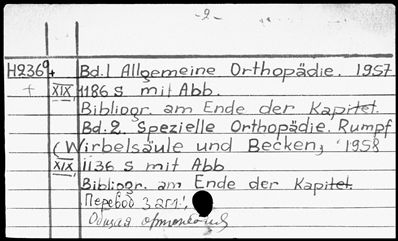 - 2 -
H2369 + Bd.1 Allgemeine Orthopädie. 1957
+ XIX, 1186 S mit Abb.
Bibliogr. am Ende der Kapitel.
Bd.2. Spezielle Orthopädie. Rumpf
(Wirbelsäule und Becken), 1958
XIX, 1136 S mit Abb
Bibliogr. am Ende der Kapitel.
Перевод загл.:
Общая ортопедия